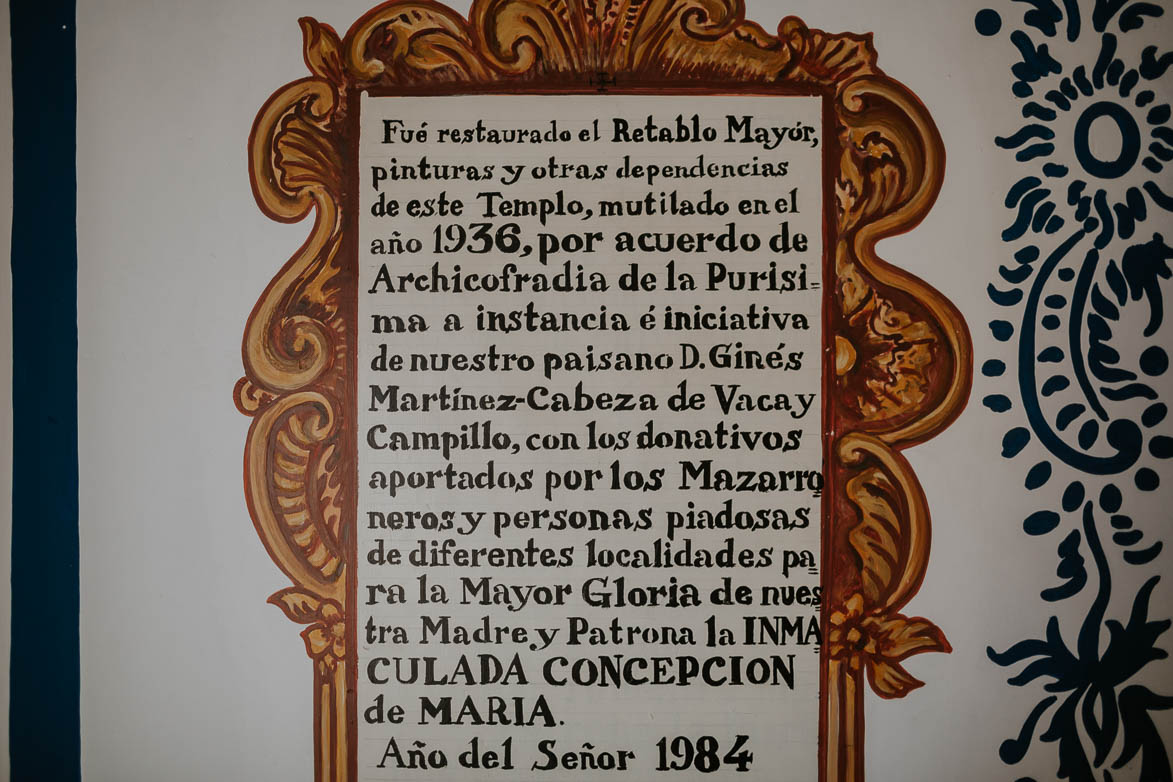 Fué restaurado el Retablo Mayór,
pinturas y otras dependencias
de este Templo, mutilado en el
año 1936, por acuerdo de
Archicofradia de la Purisi=
ma a instancia é iniciativa
de nuestro paisano D. Ginés
Martínez-Cabeza de Vaca y
Campillo, con los donativos
aportados por los Mazarro
neros y personas piadosas
de diferentes localidades pa=
ra la Mayor Gloria de nues=
tra Madre y Patrona la INMA=
CULADA CONCEPCION
de MARIA.
Año del Señor 1984